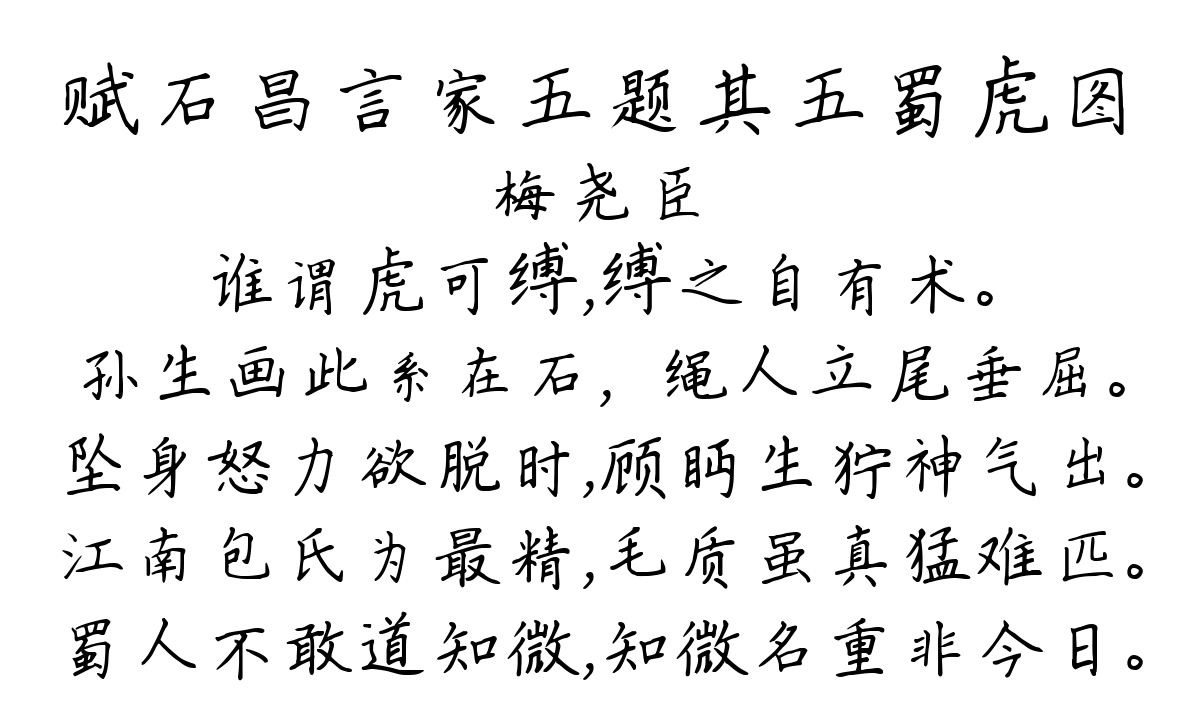 赋石昌言家五题其五蜀虎图
梅尧臣
谁谓虎可缚,缚之自有术。
孙生画此系在石，绳人立尾垂屈。
坠身怒力欲脱时,顾眄生狞神气出。
江南包氏为最精,毛质虽真猛难匹。
蜀人不敢道知微,知微名重非今日。